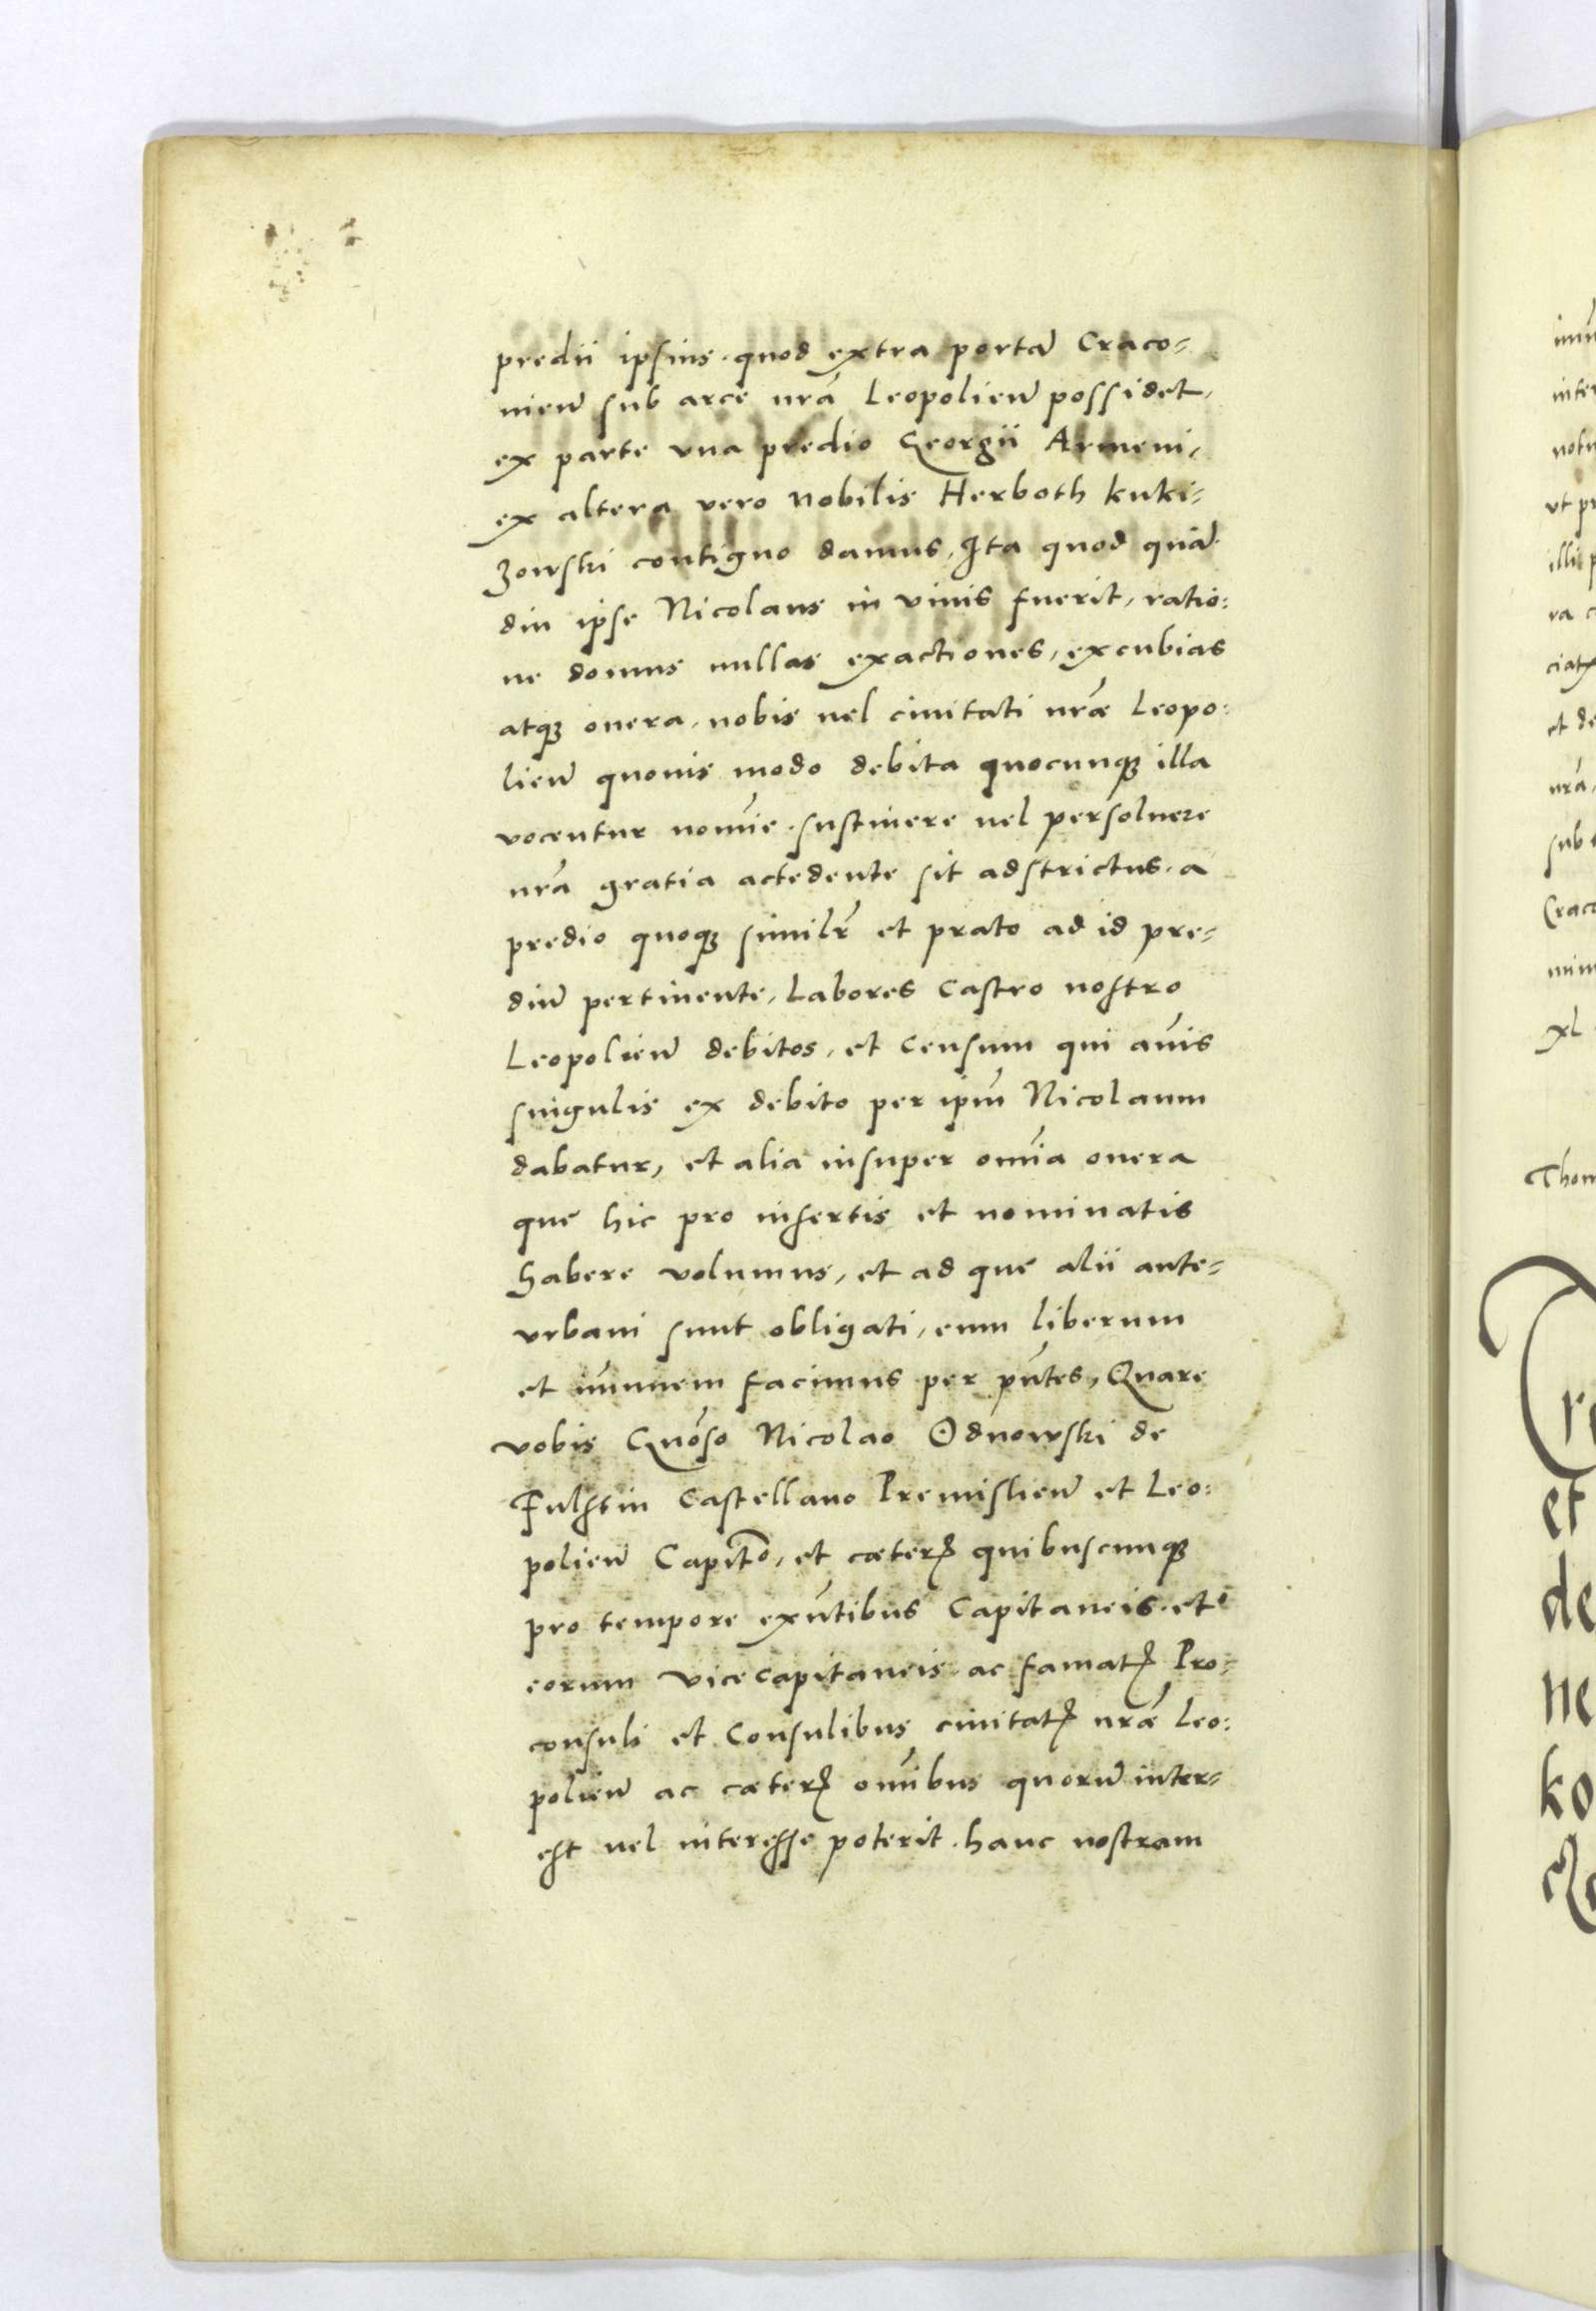 predii ipsius. quod extra portā Craco-
nień sub arce nrā Leopolień possidet,
ex parte vna predio Georgii Armeni,
ex altera vero nobilis Herboth kuki-
zowski contiguo damus, Ita quod quā
diu ipse Nicolaus in viuis fuerit, ratio:
ne domus nullas exactiones, excubias
atqꝫ onera, nobis uel ciuitati nræ Leopo:
lień quouis modo debita quocunqꝫ illa
vocentur nomīe. sustinere uel persoluere
nrā gratia accedente sit adstrictus. a
predio quoqꝫ similr̃ et prato ad id pre-
diū pertinente, Labores Castro nostro
Leopolień debitos, et Censum qui añis
singulis ex debito per ipm̄ Nicolaum
dabatur, et alia insuper om̄ia onera
que hic pro insertis et nominatis
habere volumus, et ad que alii ante-
vrbani sunt obligati, eum liberum
et im̄unem facimus per pn̄tes, Quare
vobis Gnōso Nicolao Odnowski de
Fulstin Castellano Premislień et Leo:
polień Capitō, et cæterꝭ quibuscunqꝫ
pro tempore exn̄tibus Capitaneis. et
eorum vicecapitaneis. ac famatꝭ Pro-
consuli et Consulibus ciuitatꝭ nræ Leo:
polień ac cæterꝭ om̄ibus quorū inter-
est uel interesse poterit. hanc nostram
et
de
ko
Craco
XL
sub
nrā,
et de